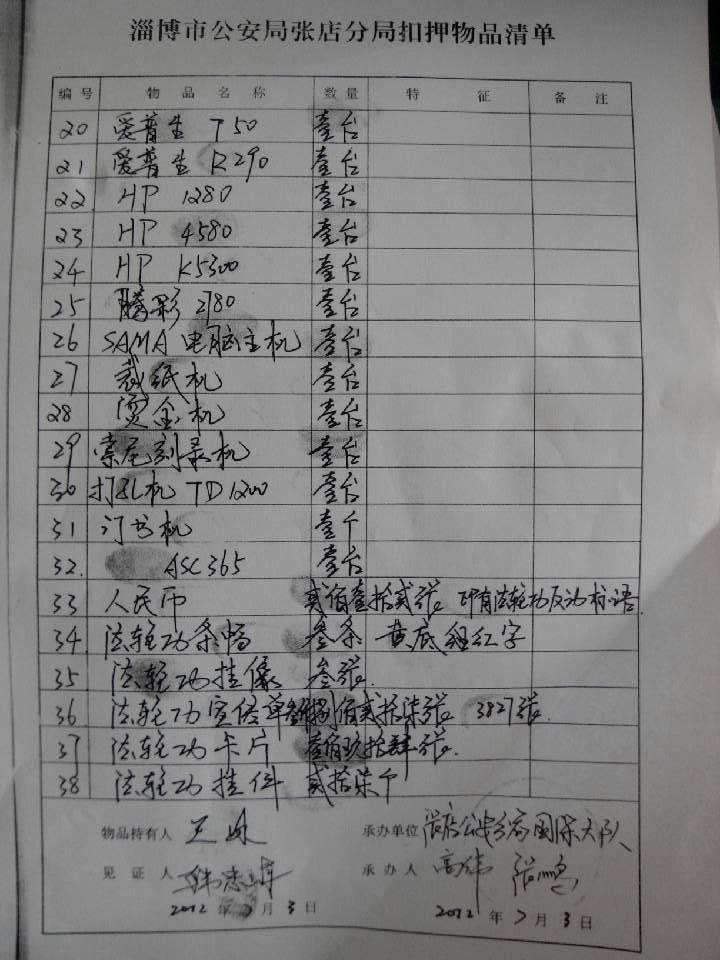 淄博市公安局张店分局扣押物品清单
编号 物品名称 数量 特征 备注
20 爱普生 T50 壹台
21 爱普生 R290 壹台
22 HP 1280 壹台
23 HP 4580 壹台
24 HP K5300 壹台
25 腾彩 2780 壹台
26 SAMA 电脑主机 壹台
27 裁纸机 壹台
28 烫金机 壹台
29 索尼刻录机 壹台
30 打孔机 TD1200 壹台
31 订书机 壹个
32. ASC365 壹台
33 人民币 贰佰壹拾贰张 印有法轮功反动标语.
34. 法轮功条幅 叁条 黄底红字
35 法轮功挂像 叁张.
36 法轮功宣传单 佰贰拾柒张 3827张.
37 法轮功卡片 壹佰玖拾张.
38 法轮功挂件 贰拾柒个
物品持有人 王 承办单位 张店公安分局国保大队
见证人 韩忠 承办人 高伟 张鹏
2012年7月3日 2012年7月3日